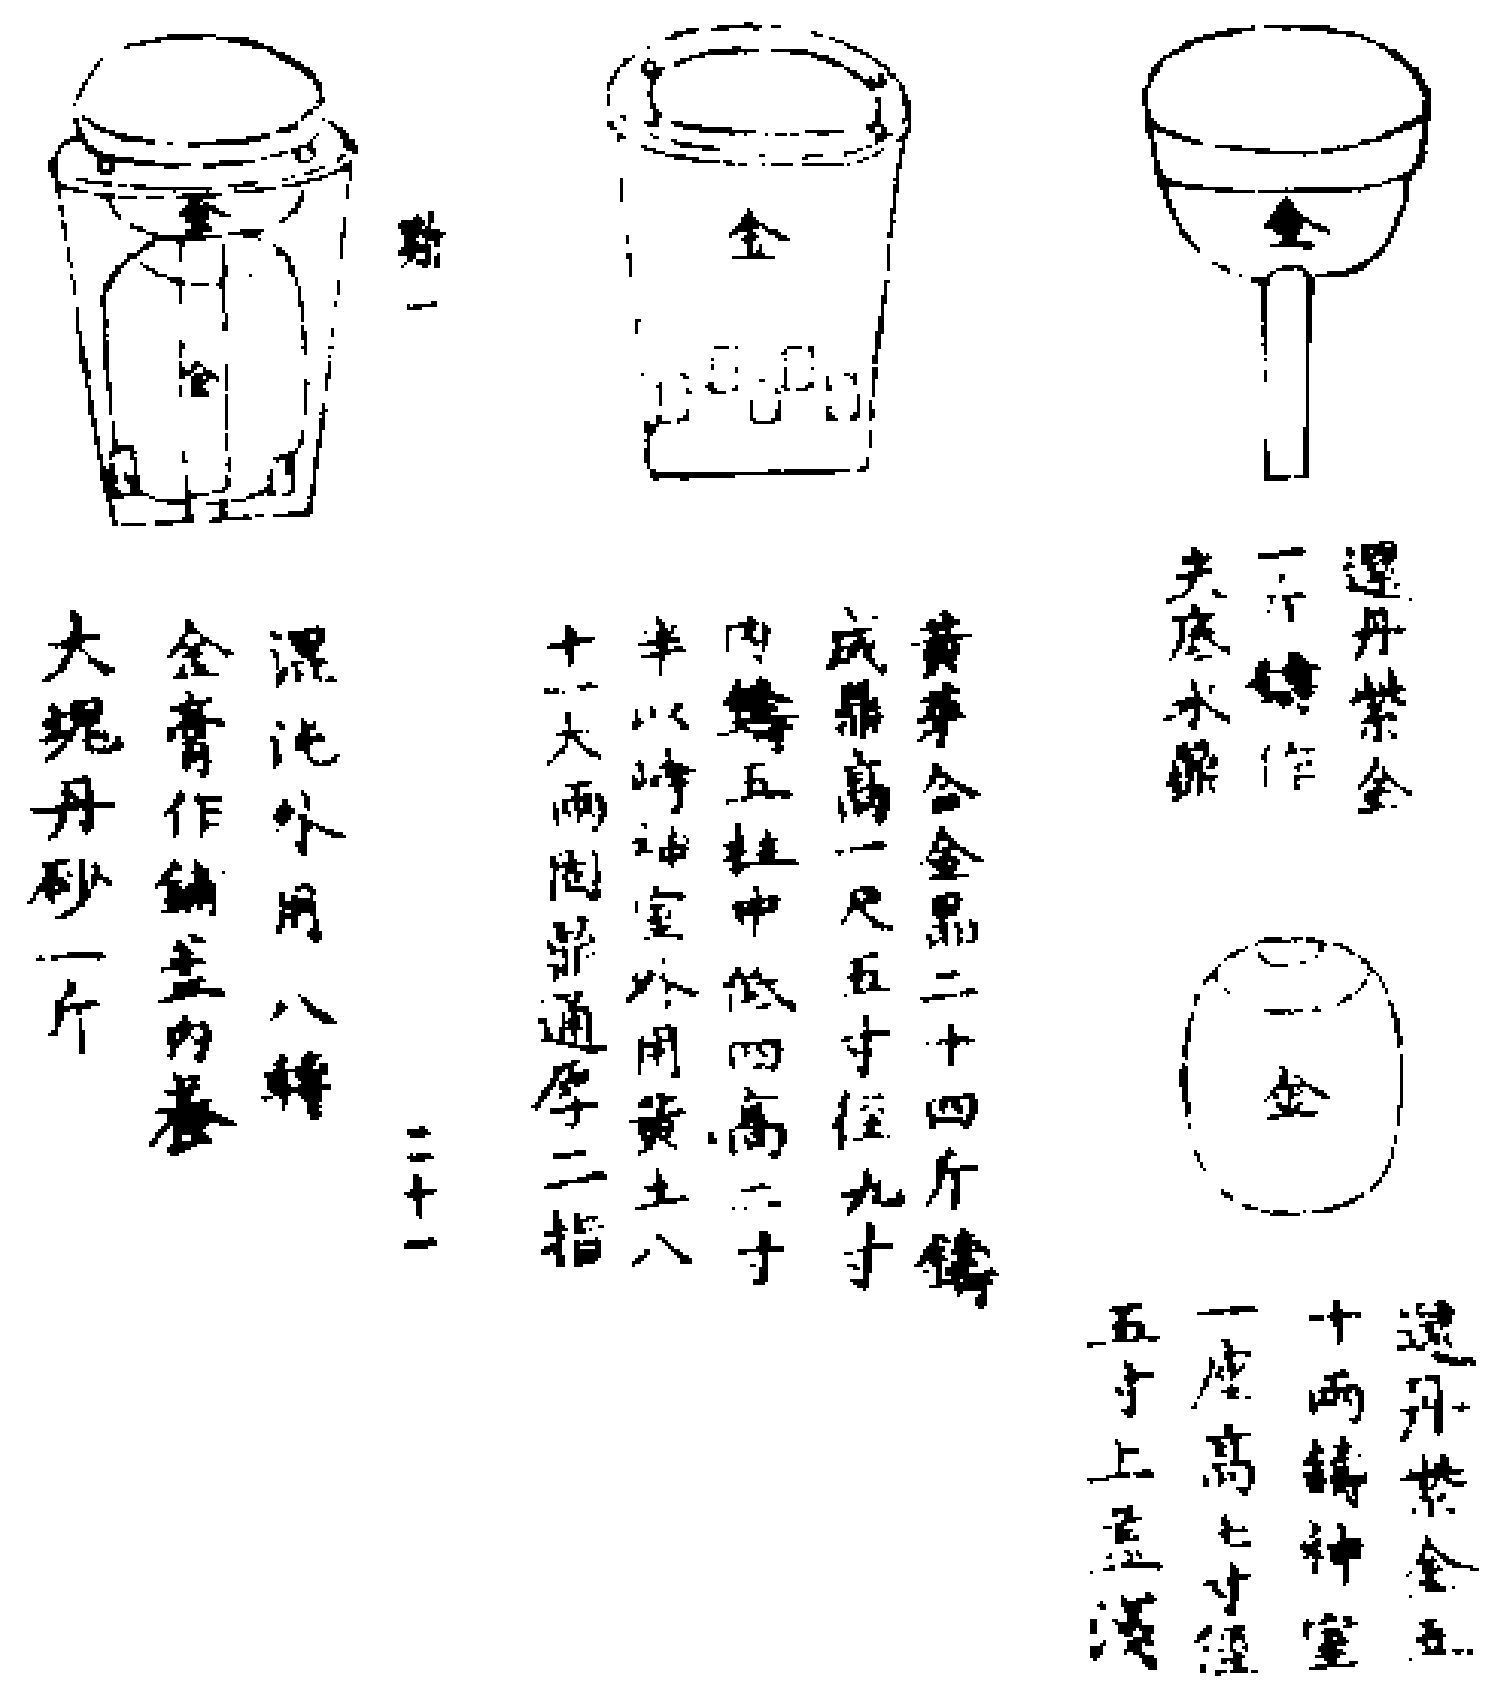 金
還丹紫金
一斤鑄作
夫底水鼎
金
還丹紫金五
十兩鑄神室
一座高七寸徑
五寸上蓋漢
金
黃華合金鼎二十四斤鑄
成鼎高一尺五寸徑九寸
內鑄五柱中低四高二寸
半以峙神室外用黃土八
十一大兩固鼎通厚二指
一
二十一
金
金
混沌外用八轉
金膏作鋪蓋內養
大塊丹砂一斤